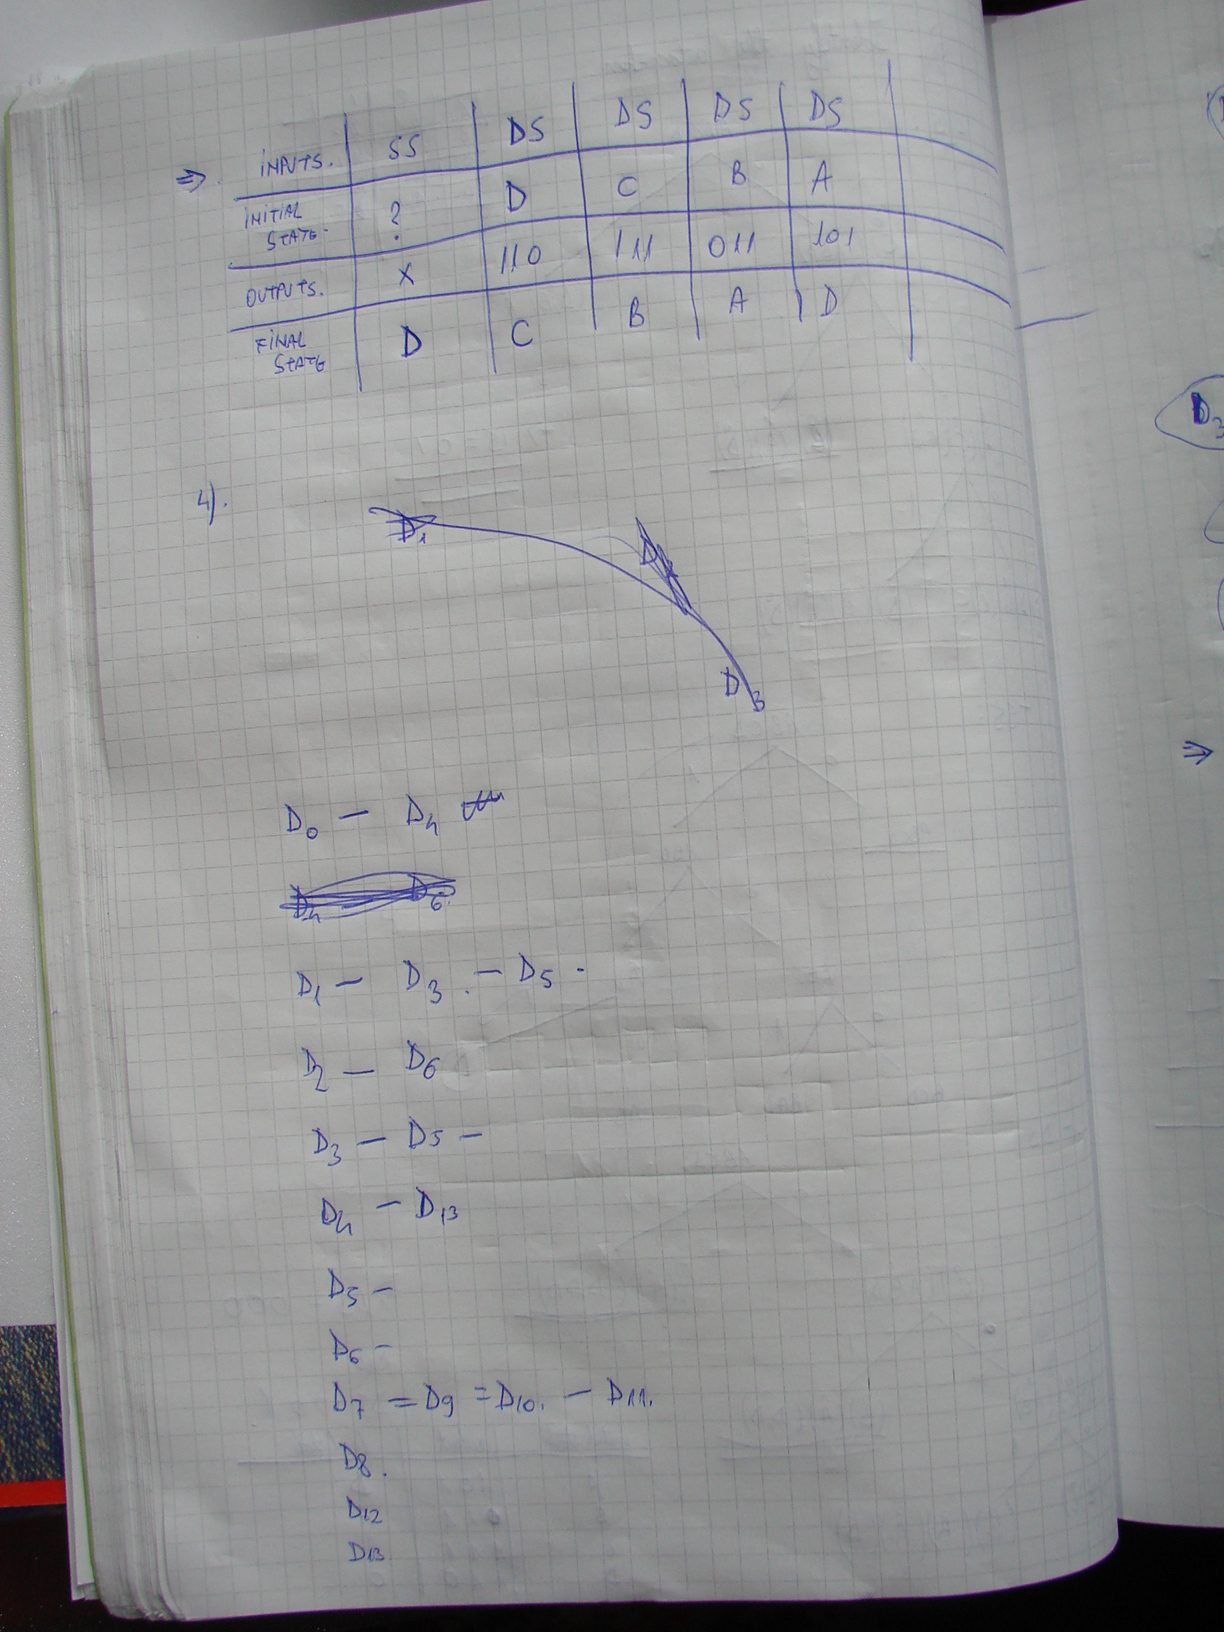 ⇒ INPUTS. SS DS DS DS DS
INITIAL STATE. ? D C B A
OUTPUTS. X 110 111 011 101
FINAL STATE D C B A D
4).
D1
D
D3
D0 — D4
D4 D6.
D1 — D3. — D5 -
D2 — D6
D3 — D5 —
D4 — D13
D5 —
D6 —
D7 = D9 = D10. — D11.
D8.
D12
D13
D3
⇒